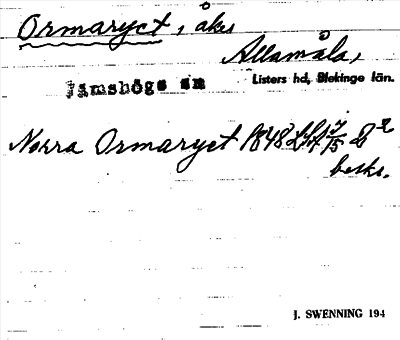 Ormaryct, åker
Allamåla,
Jämshögs sn Listers hd, Blekinge län.
Norra Ormaryct
beskr.
J. SWENNING 194